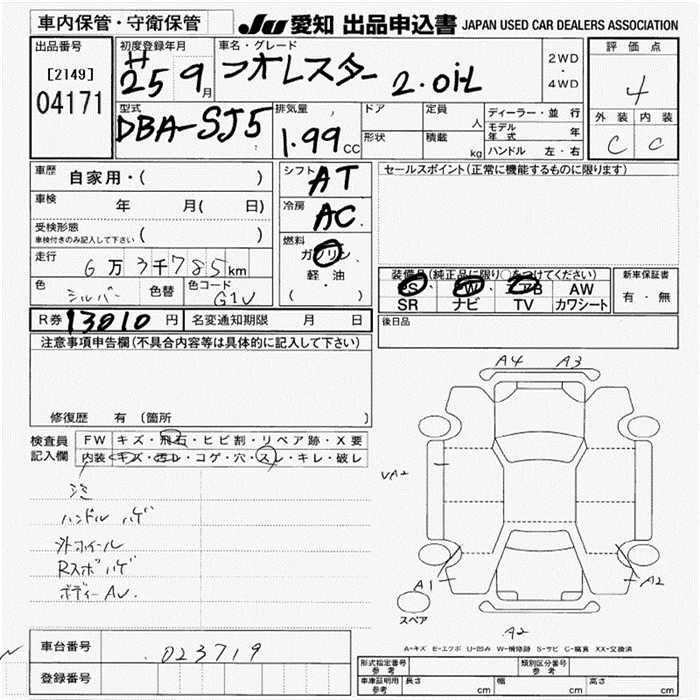 車内保管・守衛保管
JU 愛知 出品申込書 JAPAN USED CAR DEALERS ASSOCIATION
出品番号
[2149]
04171
初度登録年月
H25 9月
車名・グレード
フオレスター 2.0iL
2WD
・
4WD
評価点
4
外装 内装
C C
型式
DBA-SJ5
排気量
1.99 CC
ドア
形状
定員 人
積載 kg
ディーラー・並 行
モデル年式 年
ハンドル 左・右
車歴
自家用・( )
車検 年 月( 日)
受検形態
車検付きのみ記入して下さい ( )
走行
6万3千785km
色 シルバー 色替 色コード G1V
シフト
AT
冷房
AC
燃料
ガソリン
軽・油
( ・ )
セールスポイント(正常に機能するものに限ります)
装備品(純正品に限り○をつけてください)
PS PW エアB AW
SR ナビ TV カワシート
新車保証書
有・無
後日品
R券 13010 円 名変通知期限 月 日
注意事項申告欄(不具合内容等は具体的に記入して下さい)
修復歴 有 (箇所 )
検査員
記入欄
FW キズ・飛石・ヒビ割・リペア跡・X要
内装 キズ・汚レ・コゲ・穴・スレ・キレ・破レ
ハンドル ハゲ
外ホイール
Rスポハゲ
ボディーAU.
A4 A3
A1
A2
A2
スペア
A-キズ E-エクボ U-凹み W-補修跡 S-サビ C-腐食 XX-交換済
車台番号
023719
登録番号
型式指定番号
参考
類別区分番号
参考
車庫証明用
参考
長さ cm
幅 cm
高さ cm